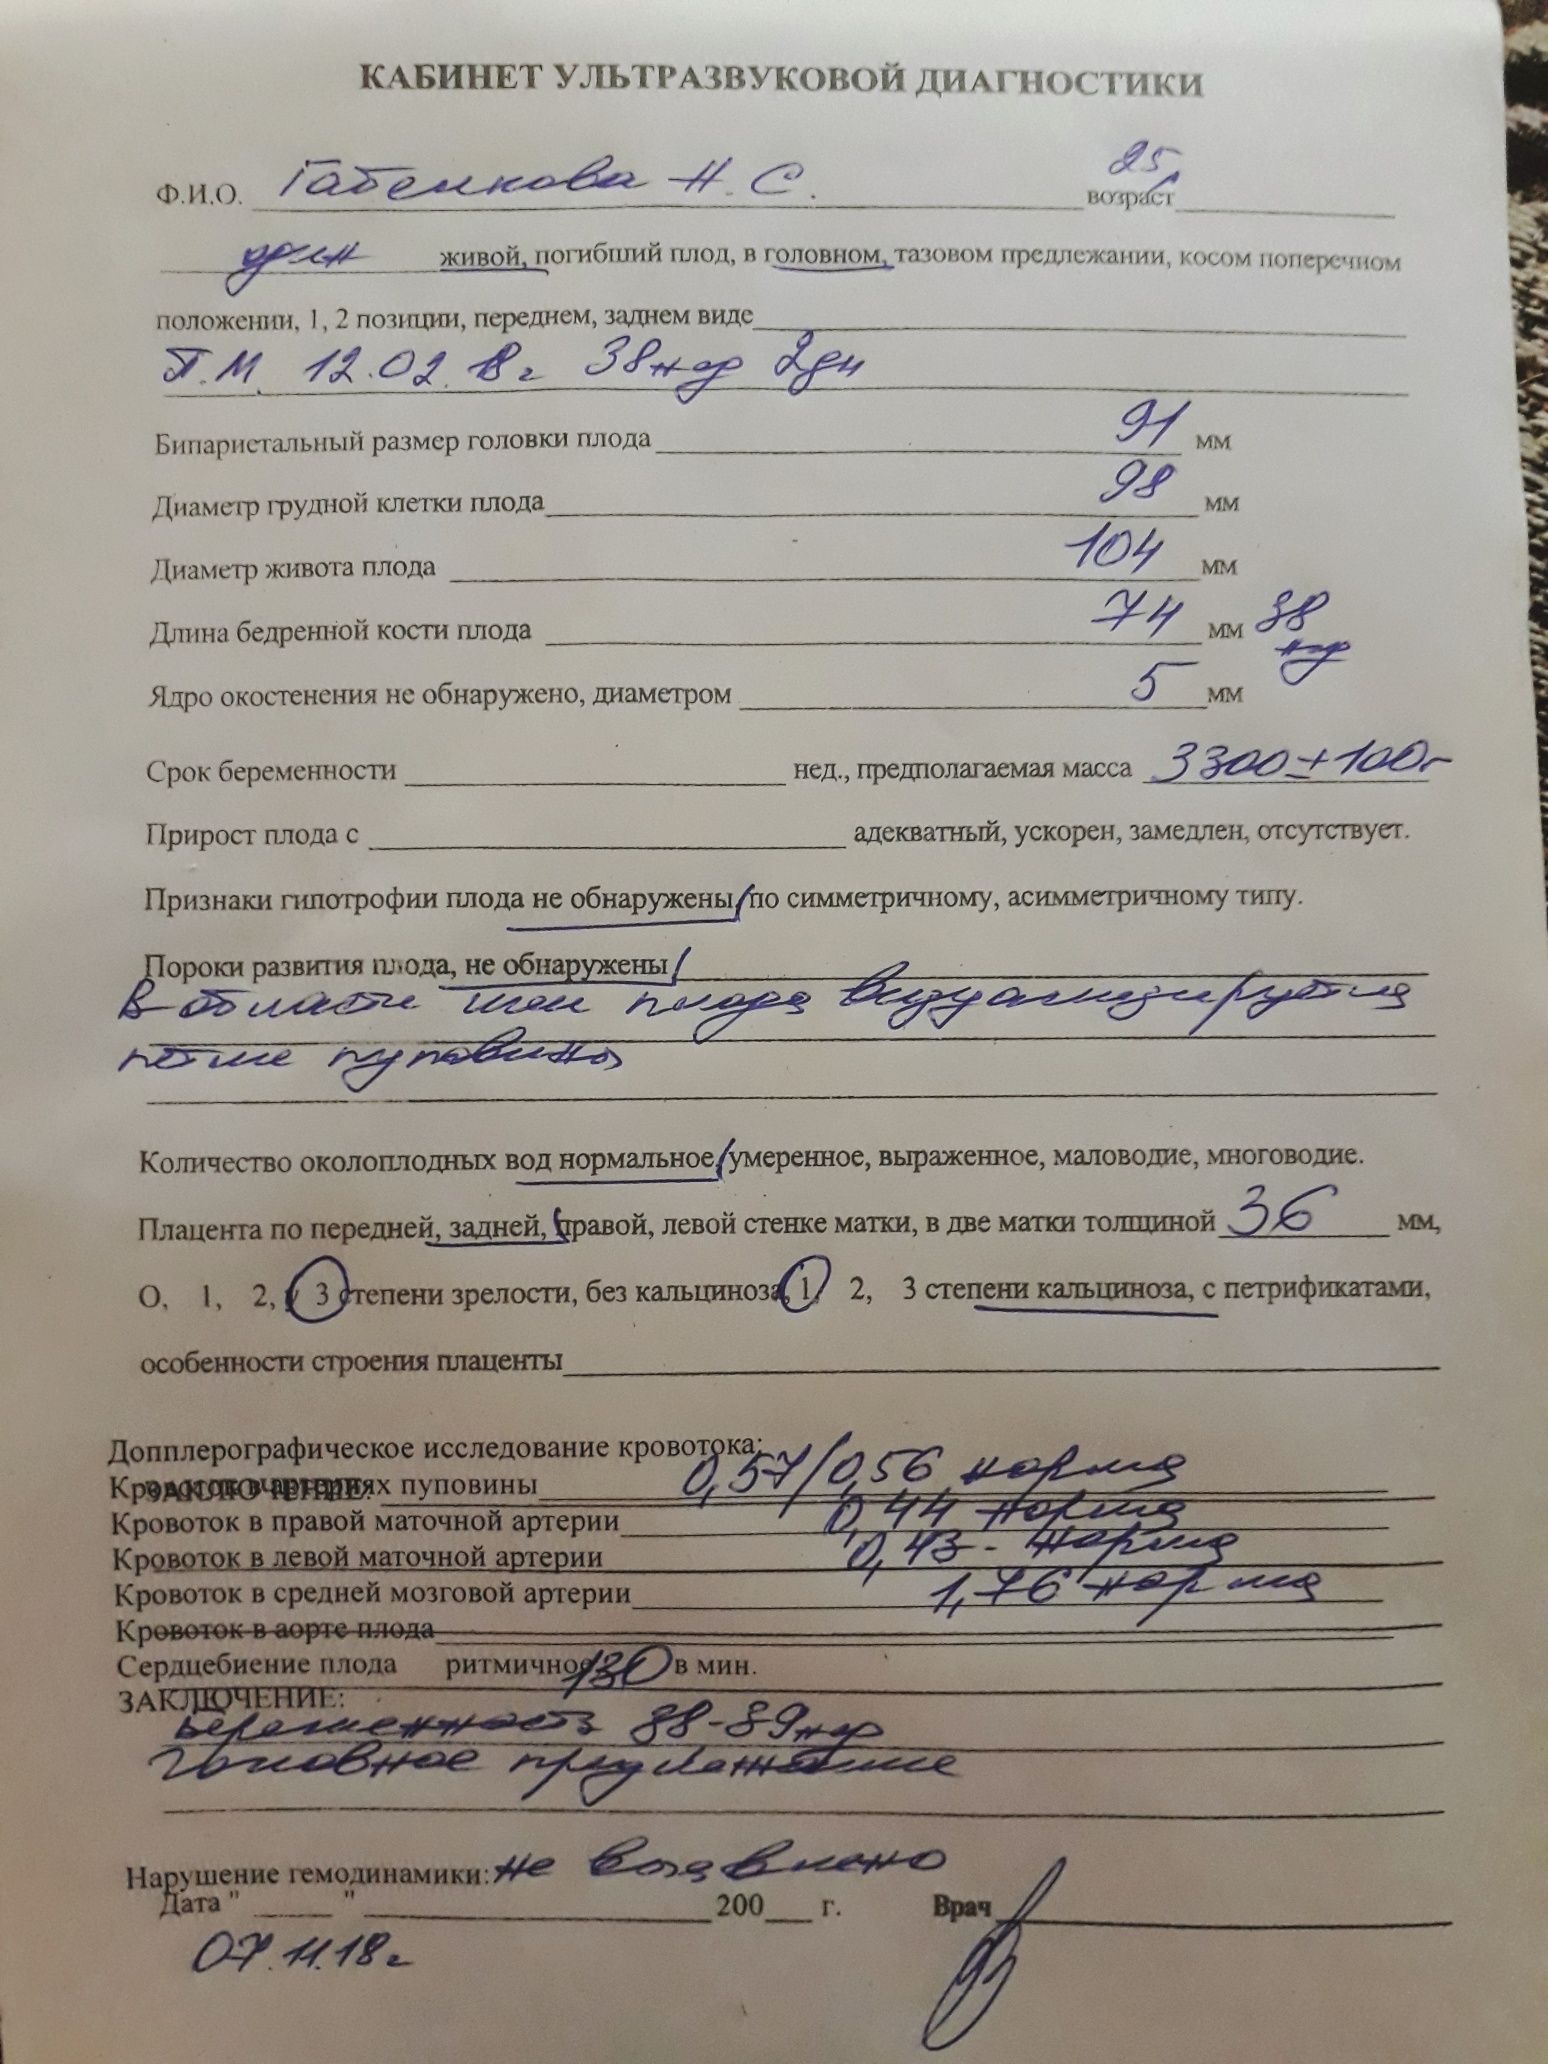 КАБИНЕТ УЛЬТРАЗВУКОВОЙ ДИАГНОСТИКИ
Ф.И.О. Н. С. возраст 25
один живой, погибший плод, в головном, тазовом предлежании, косом поперечном
положении, 1, 2 позиции, переднем, заднем виде
П.М. 12.02.18г 38нед 2дн
Бипариетальный размер головки плода 91 мм
Диаметр грудной клетки плода 98 мм
Диаметр живота плода 104 мм
Длина бедренной кости плода 74 мм 38 нед
Ядро окостенения не обнаружено, диаметром 5 мм
Срок беременности нед., предполагаемая масса 3300±100г
Прирост плода с адекватный, ускорен, замедлен, отсутствует.
Признаки гипотрофии плода не обнаружены, по симметричному, асимметричному типу.
Пороки развития плода, не обнаружены
В области шеи плода визуализируется
петля пуповины
Количество околоплодных вод нормальное, умеренное, выраженное, маловодие, многоводие.
Плацента по передней, задней, правой, левой стенке матки, в две матки толщиной 36 мм,
О, 1, 2, 3 степени зрелости, без кальциноза, 1, 2, 3 степени кальциноза, с петрификатами,
особенности строения плаценты
Допплерографическое исследование кровотока:
Кровоток в артериях пуповины 0,57/0,56 норма
ЗАКЛЮЧЕНИЕ:
Кровоток в правой маточной артерии 0,44 норма
Кровоток в левой маточной артерии 0,43 - норма
Кровоток в средней мозговой артерии 1,76 норма
Кровоток в аорте плода
Сердцебиение плода ритмичное 130 в мин.
ЗАКЛЮЧЕНИЕ:
Беременность 38-39нед
Головное предлежание
Нарушение гемодинамики: не выявлено
Дата " " 200 г. Врач
07.11.18г